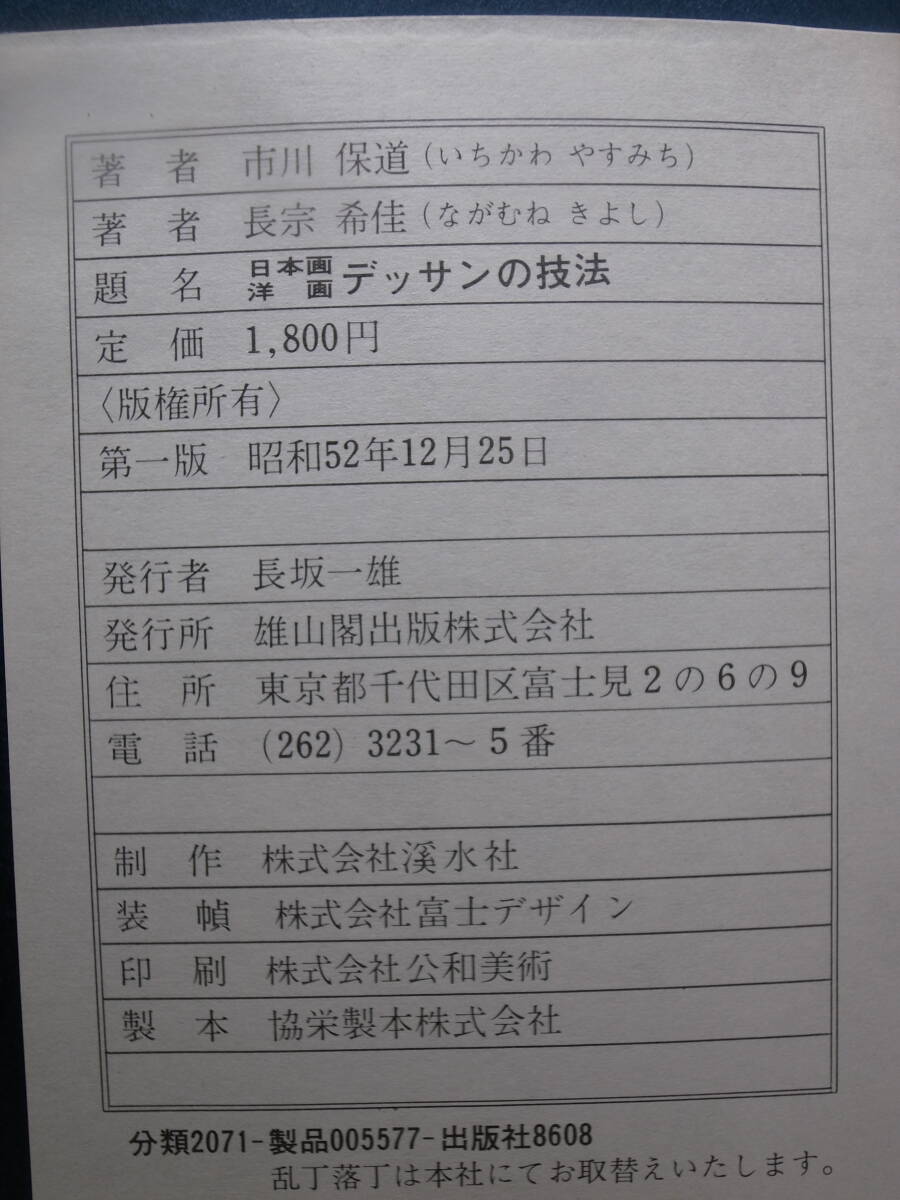 著者 市川 保道(いちかわ やすみち)
著者 長宗 希佳(ながむね きよし)
題名 日本画 洋画 デッサンの技法
定価 1,800円
〈版権所有〉
第一版 昭和52年12月25日
発行者 長坂一雄
発行所 雄山閣出版株式会社
住所 東京都千代田区富士見2の6の9
電話 (262) 3231〜5番
制作 株式会社溪水社
装幀 株式会社富士デザイン
印刷 株式会社公和美術
製本 協栄製本株式会社
分類2071-製品005577-出版社8608
乱丁落丁は本社にてお取替えいたします。